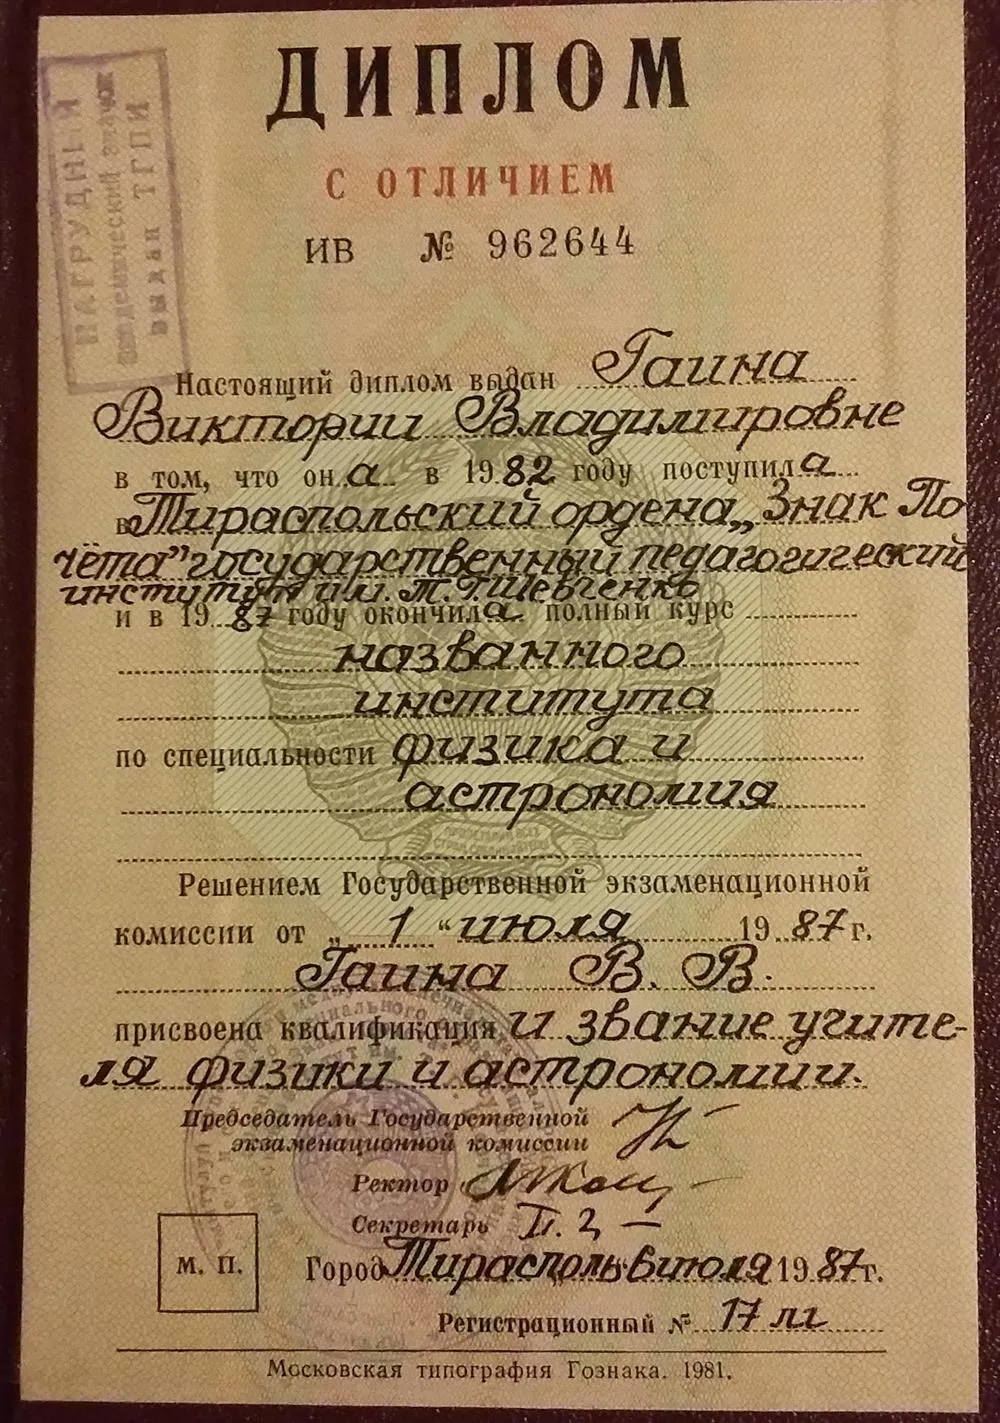 НАГРУДНЫЙ
академический значок
выдан ТГПИ
ДИПЛОМ
С ОТЛИЧИЕМ
ИВ № 962644
Настоящий диплом выдан Гаина
Виктории Владимировне
в том, что он а в 1982 году поступила
в Тираспольский ордена „Знак По
чёта" государственный педагогический
институт им. Т. Г. Шевченко
и в 1987 году окончила полный курс
названного
института
по специальности физика и
астрономия
Решением Государственной экзаменационной
комиссии от „1" июля 1987 г.
Гаина В. В.
присвоена квалификация и звание учите-
ля физики и астрономии.
Председатель Государственной
экзаменационной комиссии
Ректор
Секретарь
М. П.
Город Тирасполь 6 июля 1987 г.
Регистрационный № 17 лг
Московская типография Гознака. 1981.